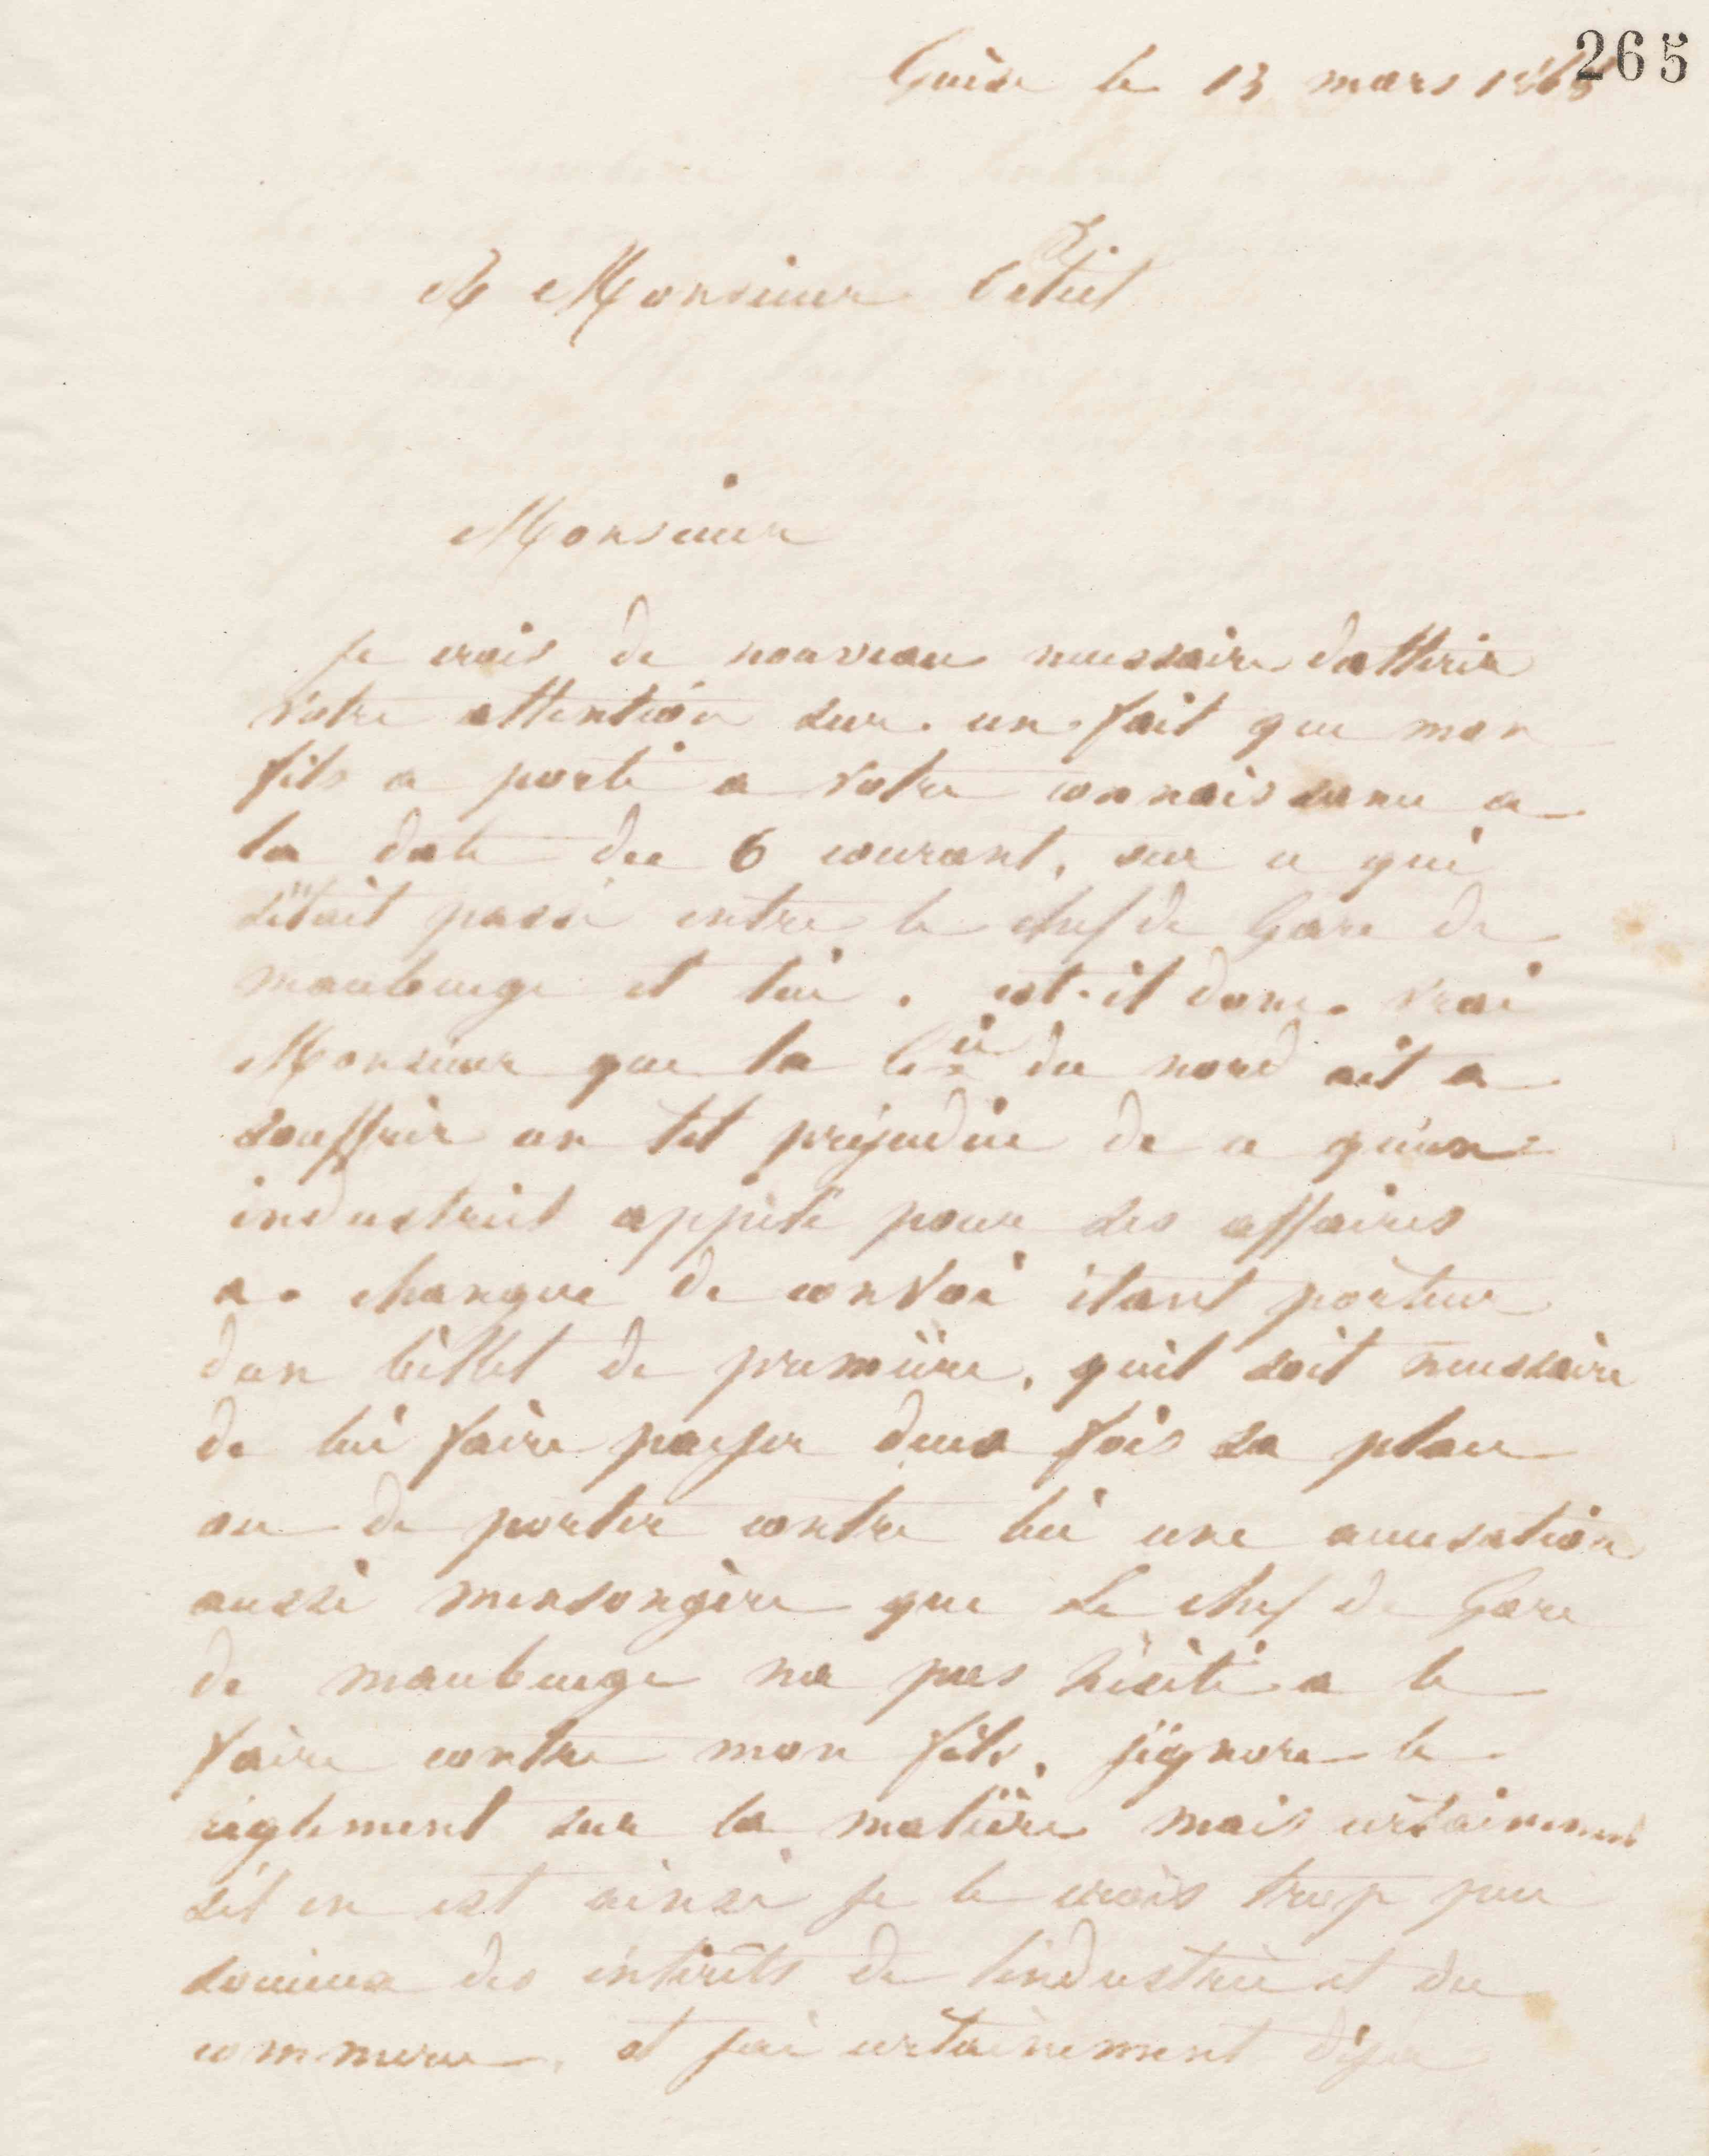 265
Guise le 13 mars 186
A Monsieur Petiet
Monsieur
Je crois de nouveau necessaire dattirer
votre attention sur un fait que mon
fils a porté a votre connaissance a
la date du 6 courant, sur ce qui
sétait passé entre le chef de Gare de
maubeuge et lui. est-il donc vrai
Monsieur que la Cie du nord ait a
souffrir un tel préjudice de ce qu'un
industriel appelé pour ses affaires
a changer de convoi étant porteur
dun billet de première, quil soit necessaire
de lui faire payer deux fois sa place
ou de porter contre lui une accusation
aussi mensongère que le chef de Gare
de maubeuge na pas hésité a le
faire contre mon fils. jignore le
règlement sur la matière mais certainement
sil en est ainsi je le crois trop peu
soucieux des intérêts de lindustrie et du
commerce, et jai certainement déja